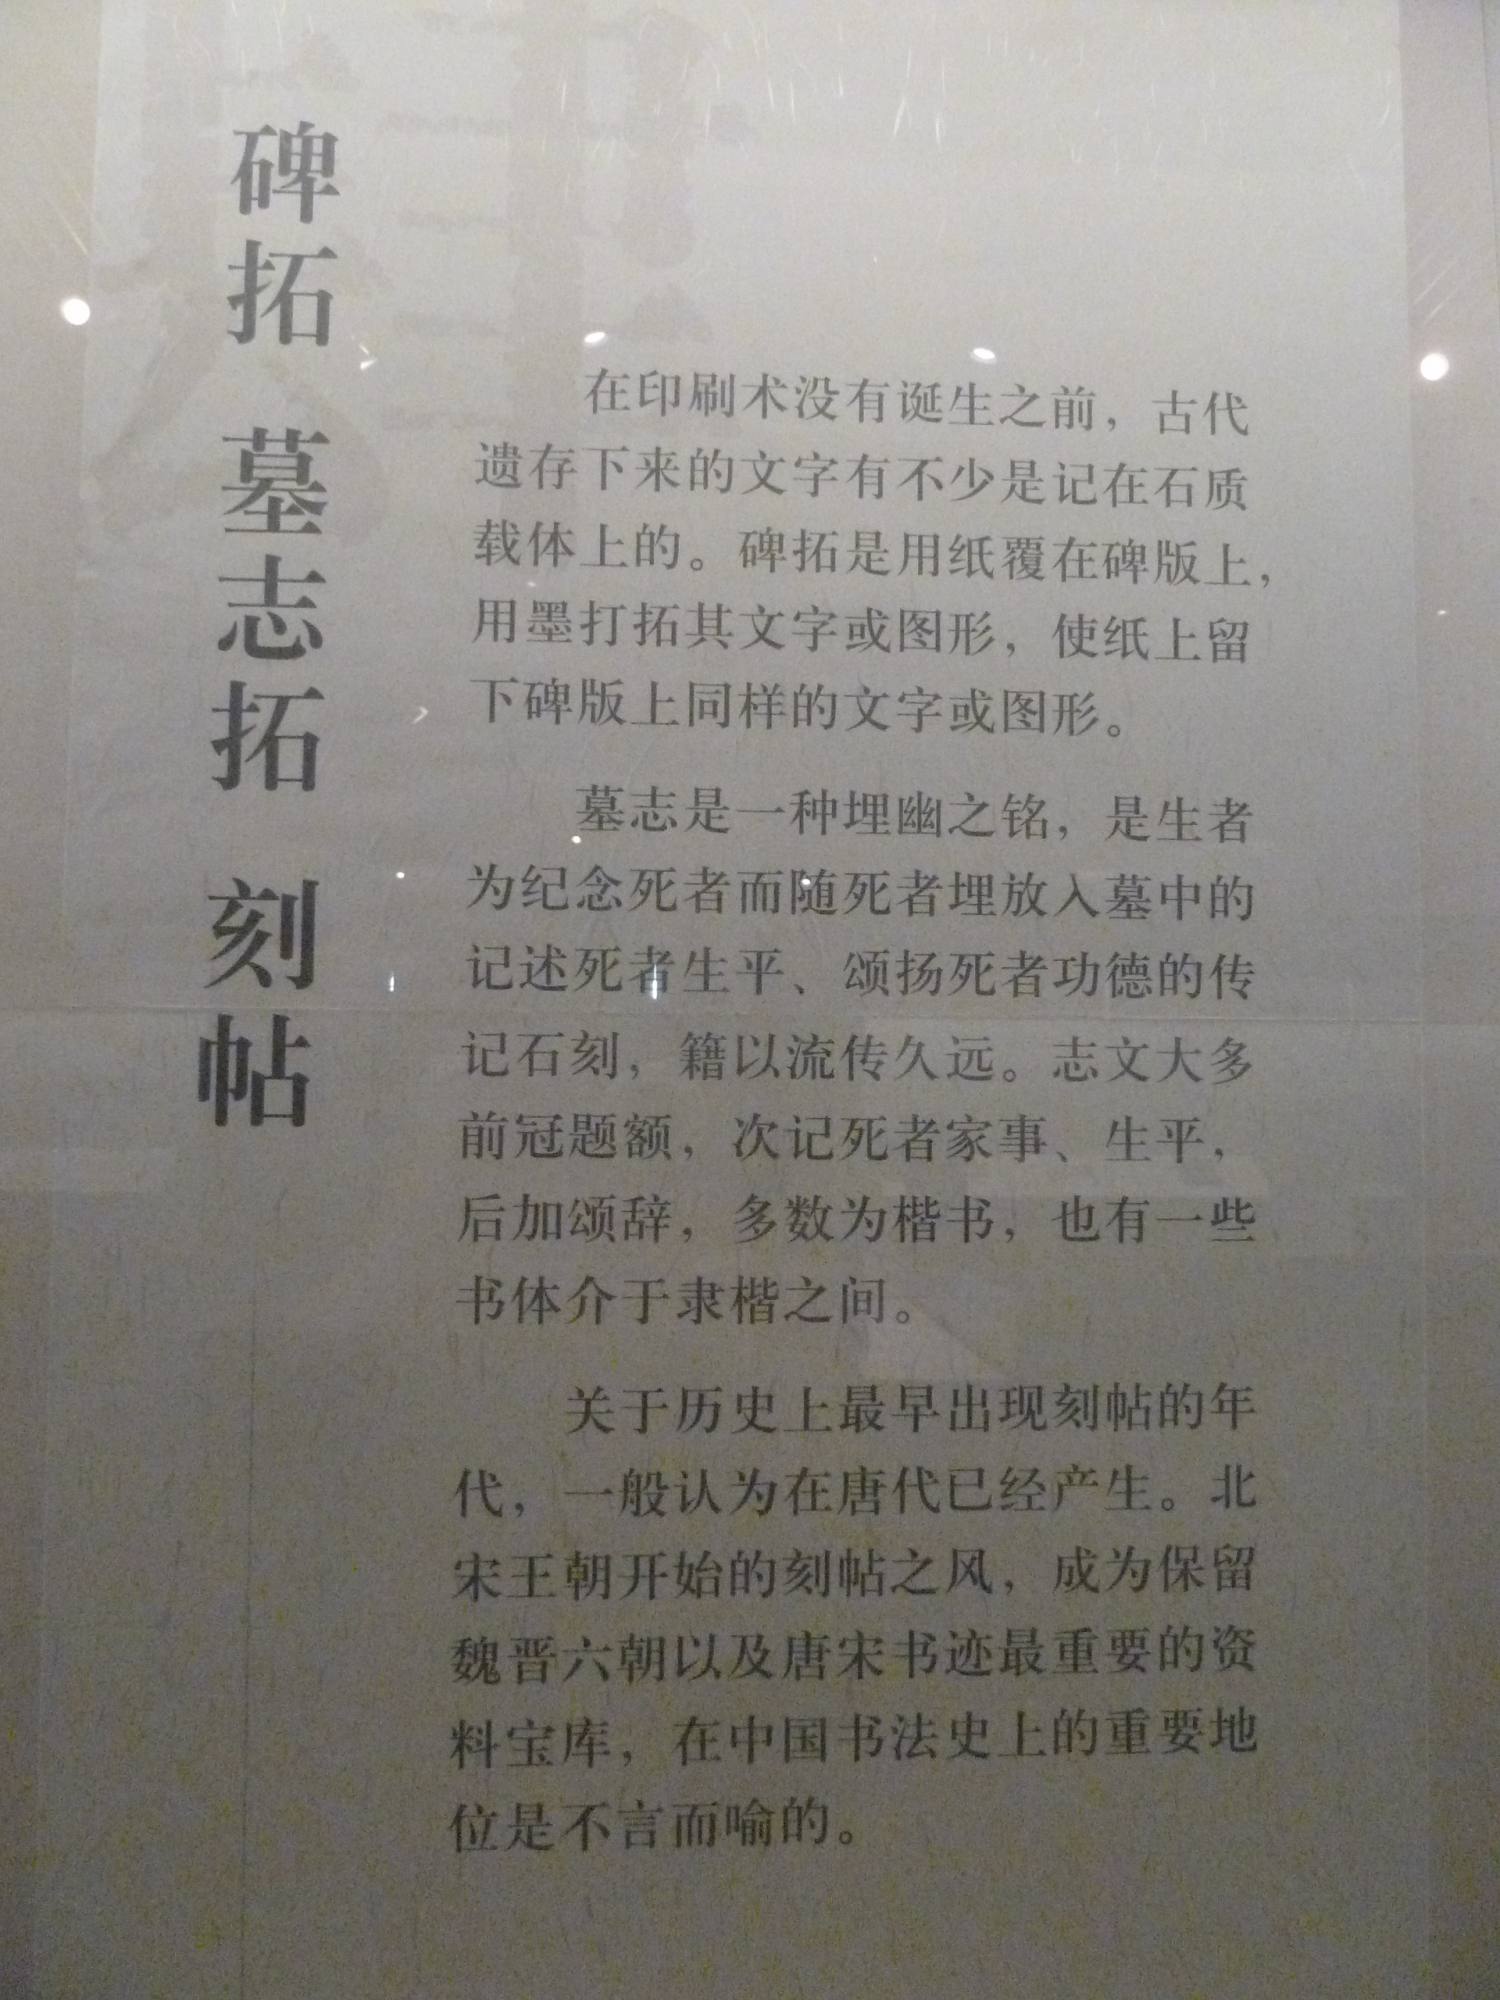 碑拓 墓志拓 刻帖
在印刷术没有诞生之前，古代
遗存下来的文字有不少是记在石质
载体上的。碑拓是用纸覆在碑版上，
用墨打拓其文字或图形，使纸上留
下碑版上同样的文字或图形。
墓志是一种埋幽之铭，是生者
为纪念死者而随死者埋放入墓中的
记述死者生平、颂扬死者功德的传
记石刻，籍以流传久远。志文大多
前冠题额，次记死者家事、生平，
后加颂辞，多数为楷书，也有一些
书体介于隶楷之间。
关于历史上最早出现刻帖的年
代，一般认为在唐代已经产生。北
宋王朝开始的刻帖之风，成为保留
魏晋六朝以及唐宋书迹最重要的资
料宝库，在中国书法史上的重要地
位是不言而喻的。